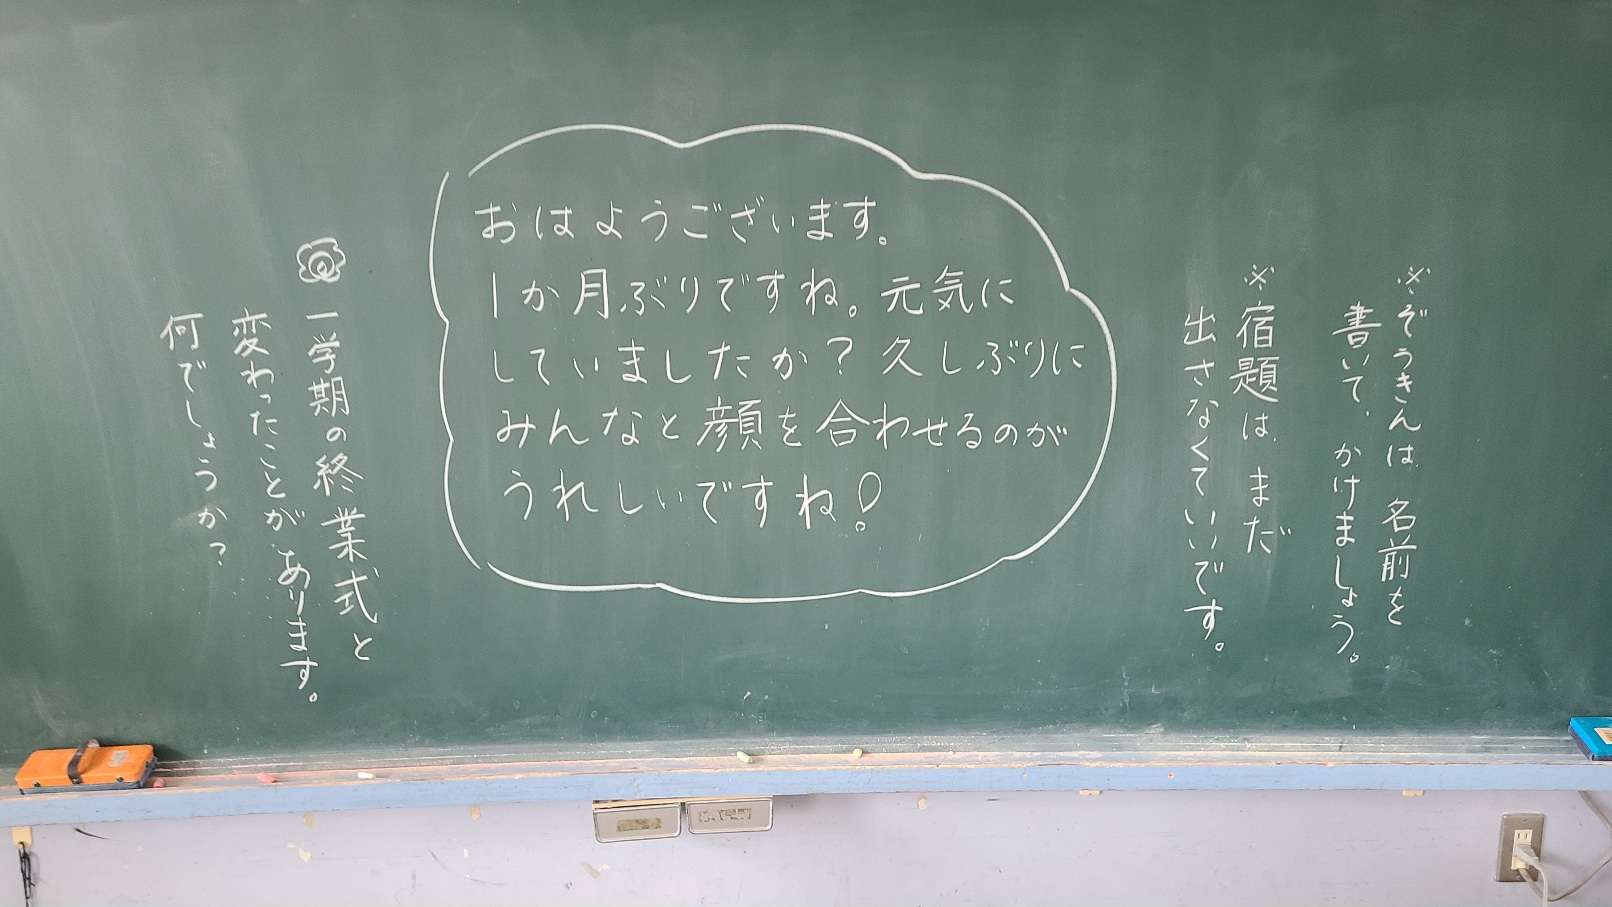 ※ぞうきんは、名前を
書いて、かけましょう。
※宿題は、まだ
出さなくていいです。
おはようございます。
1か月ぶりですね。元気に
していましたか？久しぶりに
みんなと顔を合わせるのが
うれしいですね！
一学期の終業式と
変わったことが、あります。
何でしょうか？